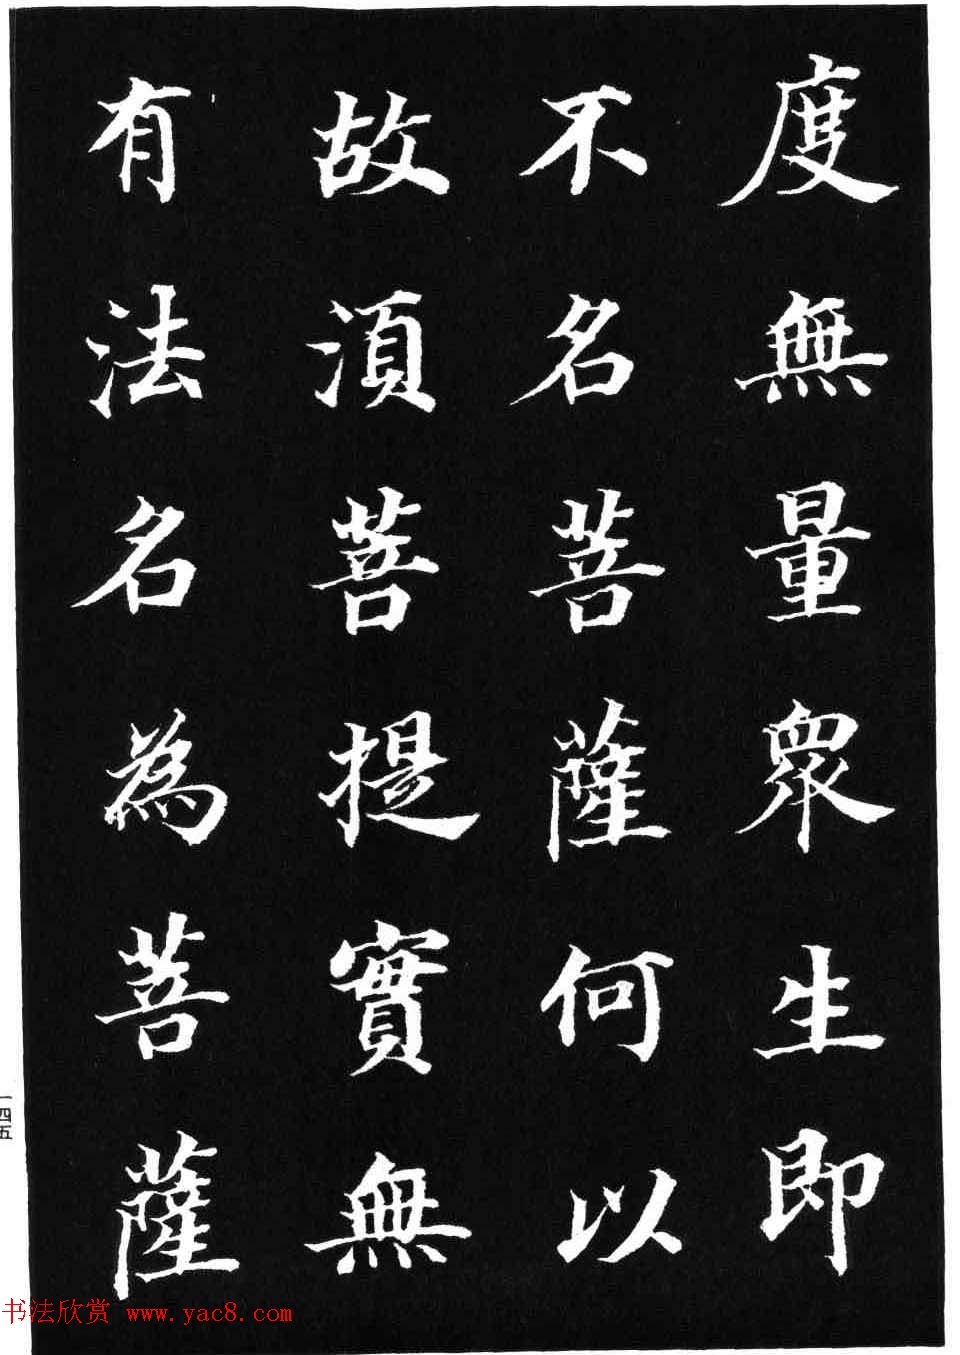 度無量衆生即
不名菩薩何以
故湏菩提實無
有法名為菩薩
一四五
书法欣赏 www.yac8.com